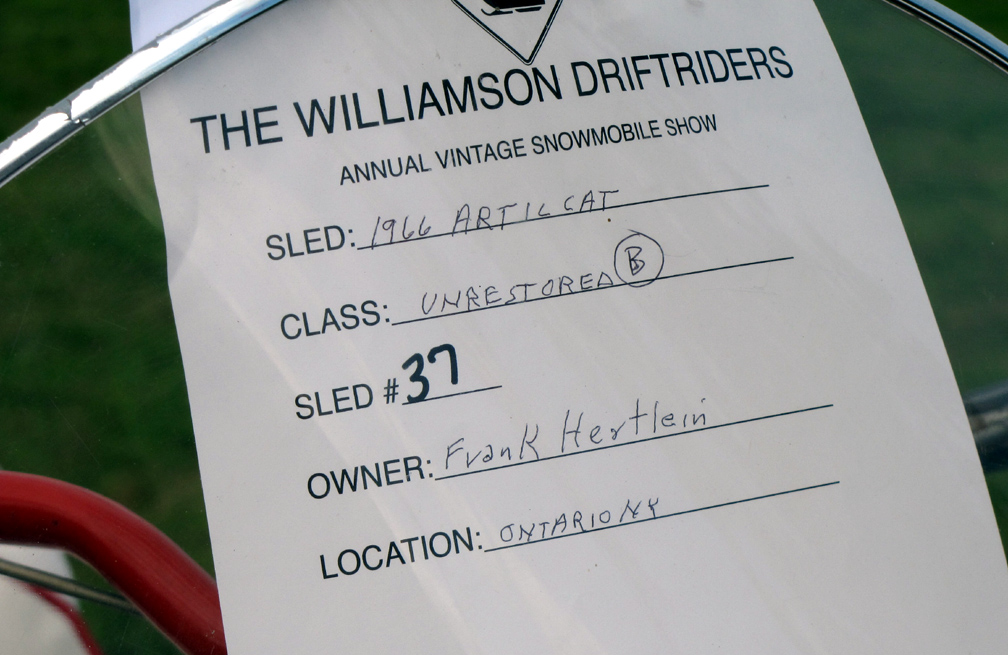 THE WILLIAMSON DRIFTRIDERS
ANNUAL VINTAGE SNOWMOBILE SHOW
SLED: 1966 ARTIC CAT
CLASS: UNRESTORED B
SLED # 37
OWNER: Frank Hertlein
LOCATION: ONTARIO NY